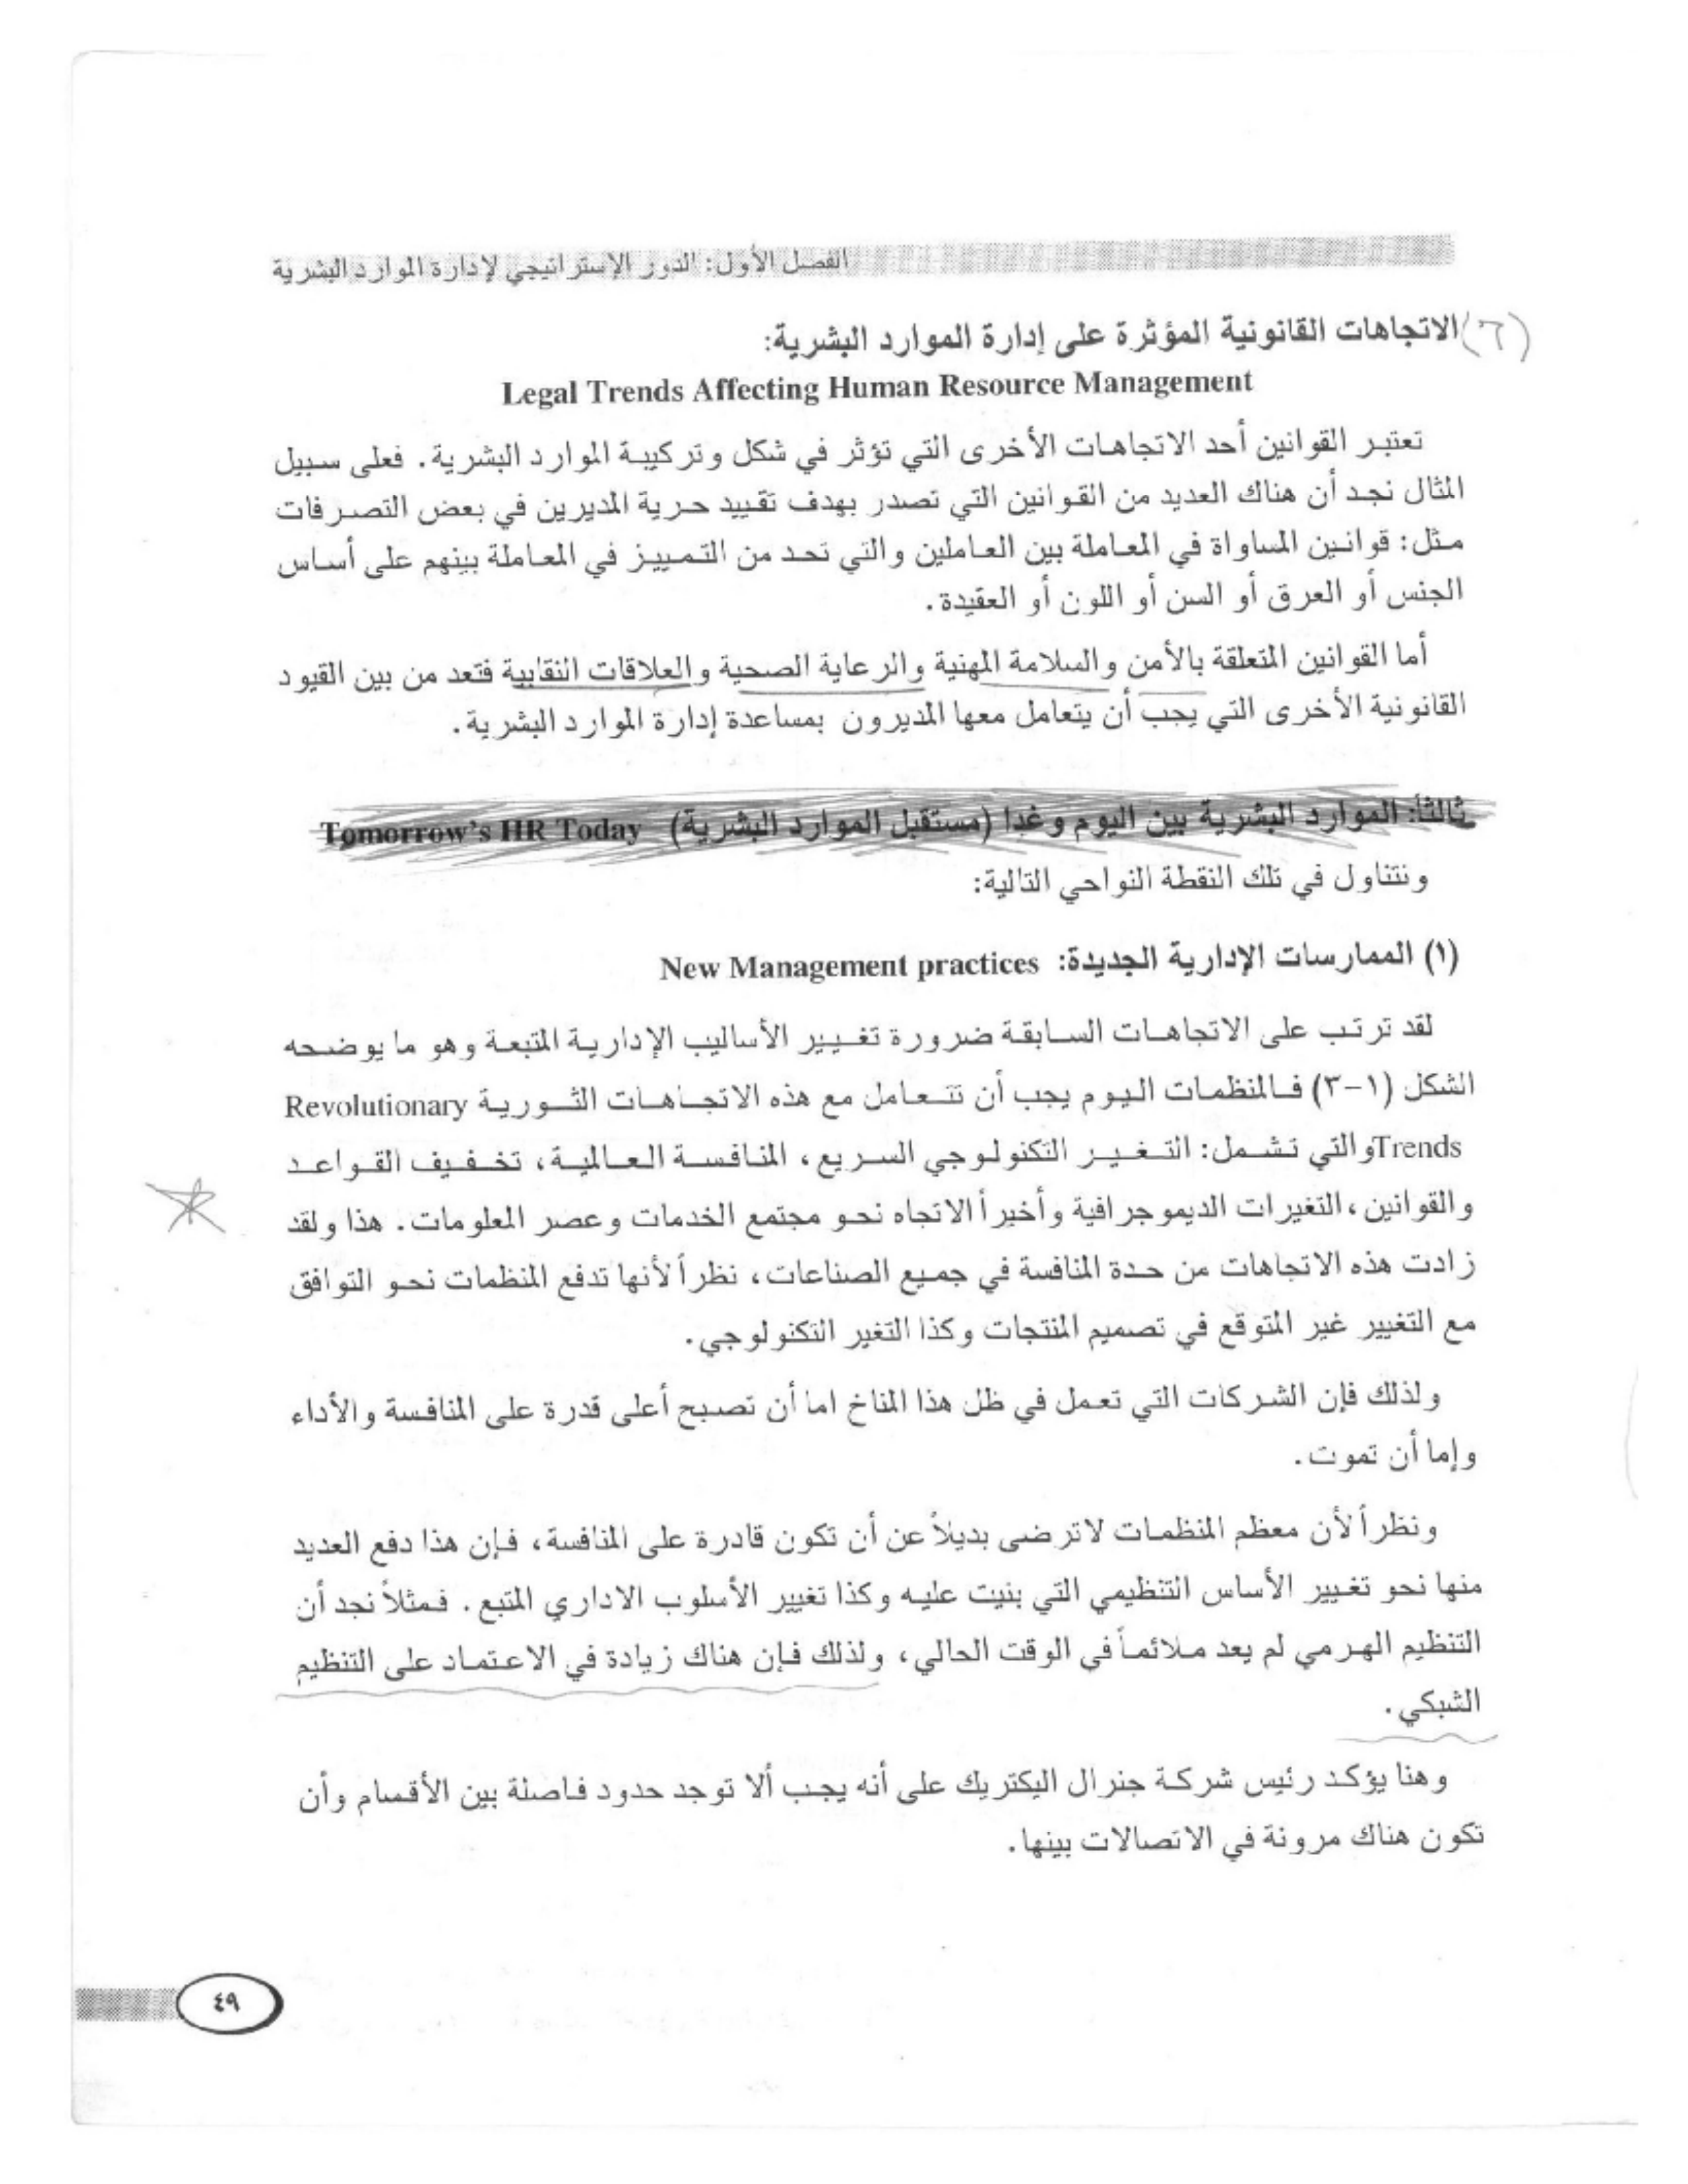 الفصل الأول: الدور الإستراتيجي لإدارة الموارد البشرية
(٦) الاتجاهات القانونية المؤثرة على إدارة الموارد البشرية:
Legal Trends Affecting Human Resource Management
تعتبر القوانين أحد الاتجاهات الأخرى التي تؤثر في شكل وتركيبة الموارد البشرية. فعلى سبيل
المثال نجد أن هناك العديد من القوانين التي تصدر بهدف تقييد حرية المديرين في بعض التصرفات
مثل: قوانين المساواة في المعاملة بين العاملين والتي تحد من التمييز في المعاملة بينهم على أساس
الجنس أو العرق أو السن أو اللون أو العقيدة.
أما القوانين المتعلقة بالأمن والسلامة المهنية والرعاية الصحية والعلاقات النقابية فتعد من بين القيود
القانونية الأخرى التي يجب أن يتعامل معها المديرون بمساعدة إدارة الموارد البشرية.
ثالثاً: الموارد البشرية بين اليوم وغدا (مستقبل الموارد البشرية) Tomorrow's HR Today
ونتناول في تلك النقطة النواحي التالية:
(١) الممارسات الإدارية الجديدة: New Management practices
لقد ترتب على الاتجاهات السابقة ضرورة تغيير الأساليب الإدارية المتبعة وهو ما يوضحه
الشكل (١-٣) فالمنظمات اليوم يجب أن تتعامل مع هذه الاتجاهات الثورية Revolutionary
Trends والتي تشمل: التغيير التكنولوجي السريع، المنافسة العالمية، تخفيف القواعد
والقوانين، التغيرات الديموجرافية وأخيراً الاتجاه نحو مجتمع الخدمات وعصر المعلومات. هذا ولقد
زادت هذه الاتجاهات من حدة المنافسة في جميع الصناعات، نظراً لأنها تدفع المنظمات نحو التوافق
مع التغيير غير المتوقع في تصميم المنتجات وكذا التغير التكنولوجي.
ولذلك فإن الشركات التي تعمل في ظل هذا المناخ اما أن تصبح أعلى قدرة على المنافسة والأداء
وإما أن تموت.
ونظراً لأن معظم المنظمات لاترضى بديلاً عن أن تكون قادرة على المنافسة، فإن هذا دفع العديد
منها نحو تغيير الأساس التنظيمي التي بنيت عليه وكذا تغيير الأسلوب الاداري المتبع. فمثلاً نجد أن
التنظيم الهرمي لم يعد ملائماً في الوقت الحالي، ولذلك فإن هناك زيادة في الاعتماد على التنظيم
الشبكي.
وهنا يؤكد رئيس شركة جنرال اليكتريك على أنه يجب ألا توجد حدود فاصلة بين الأقسام وأن
تكون هناك مرونة في الاتصالات بينها.
٤٩